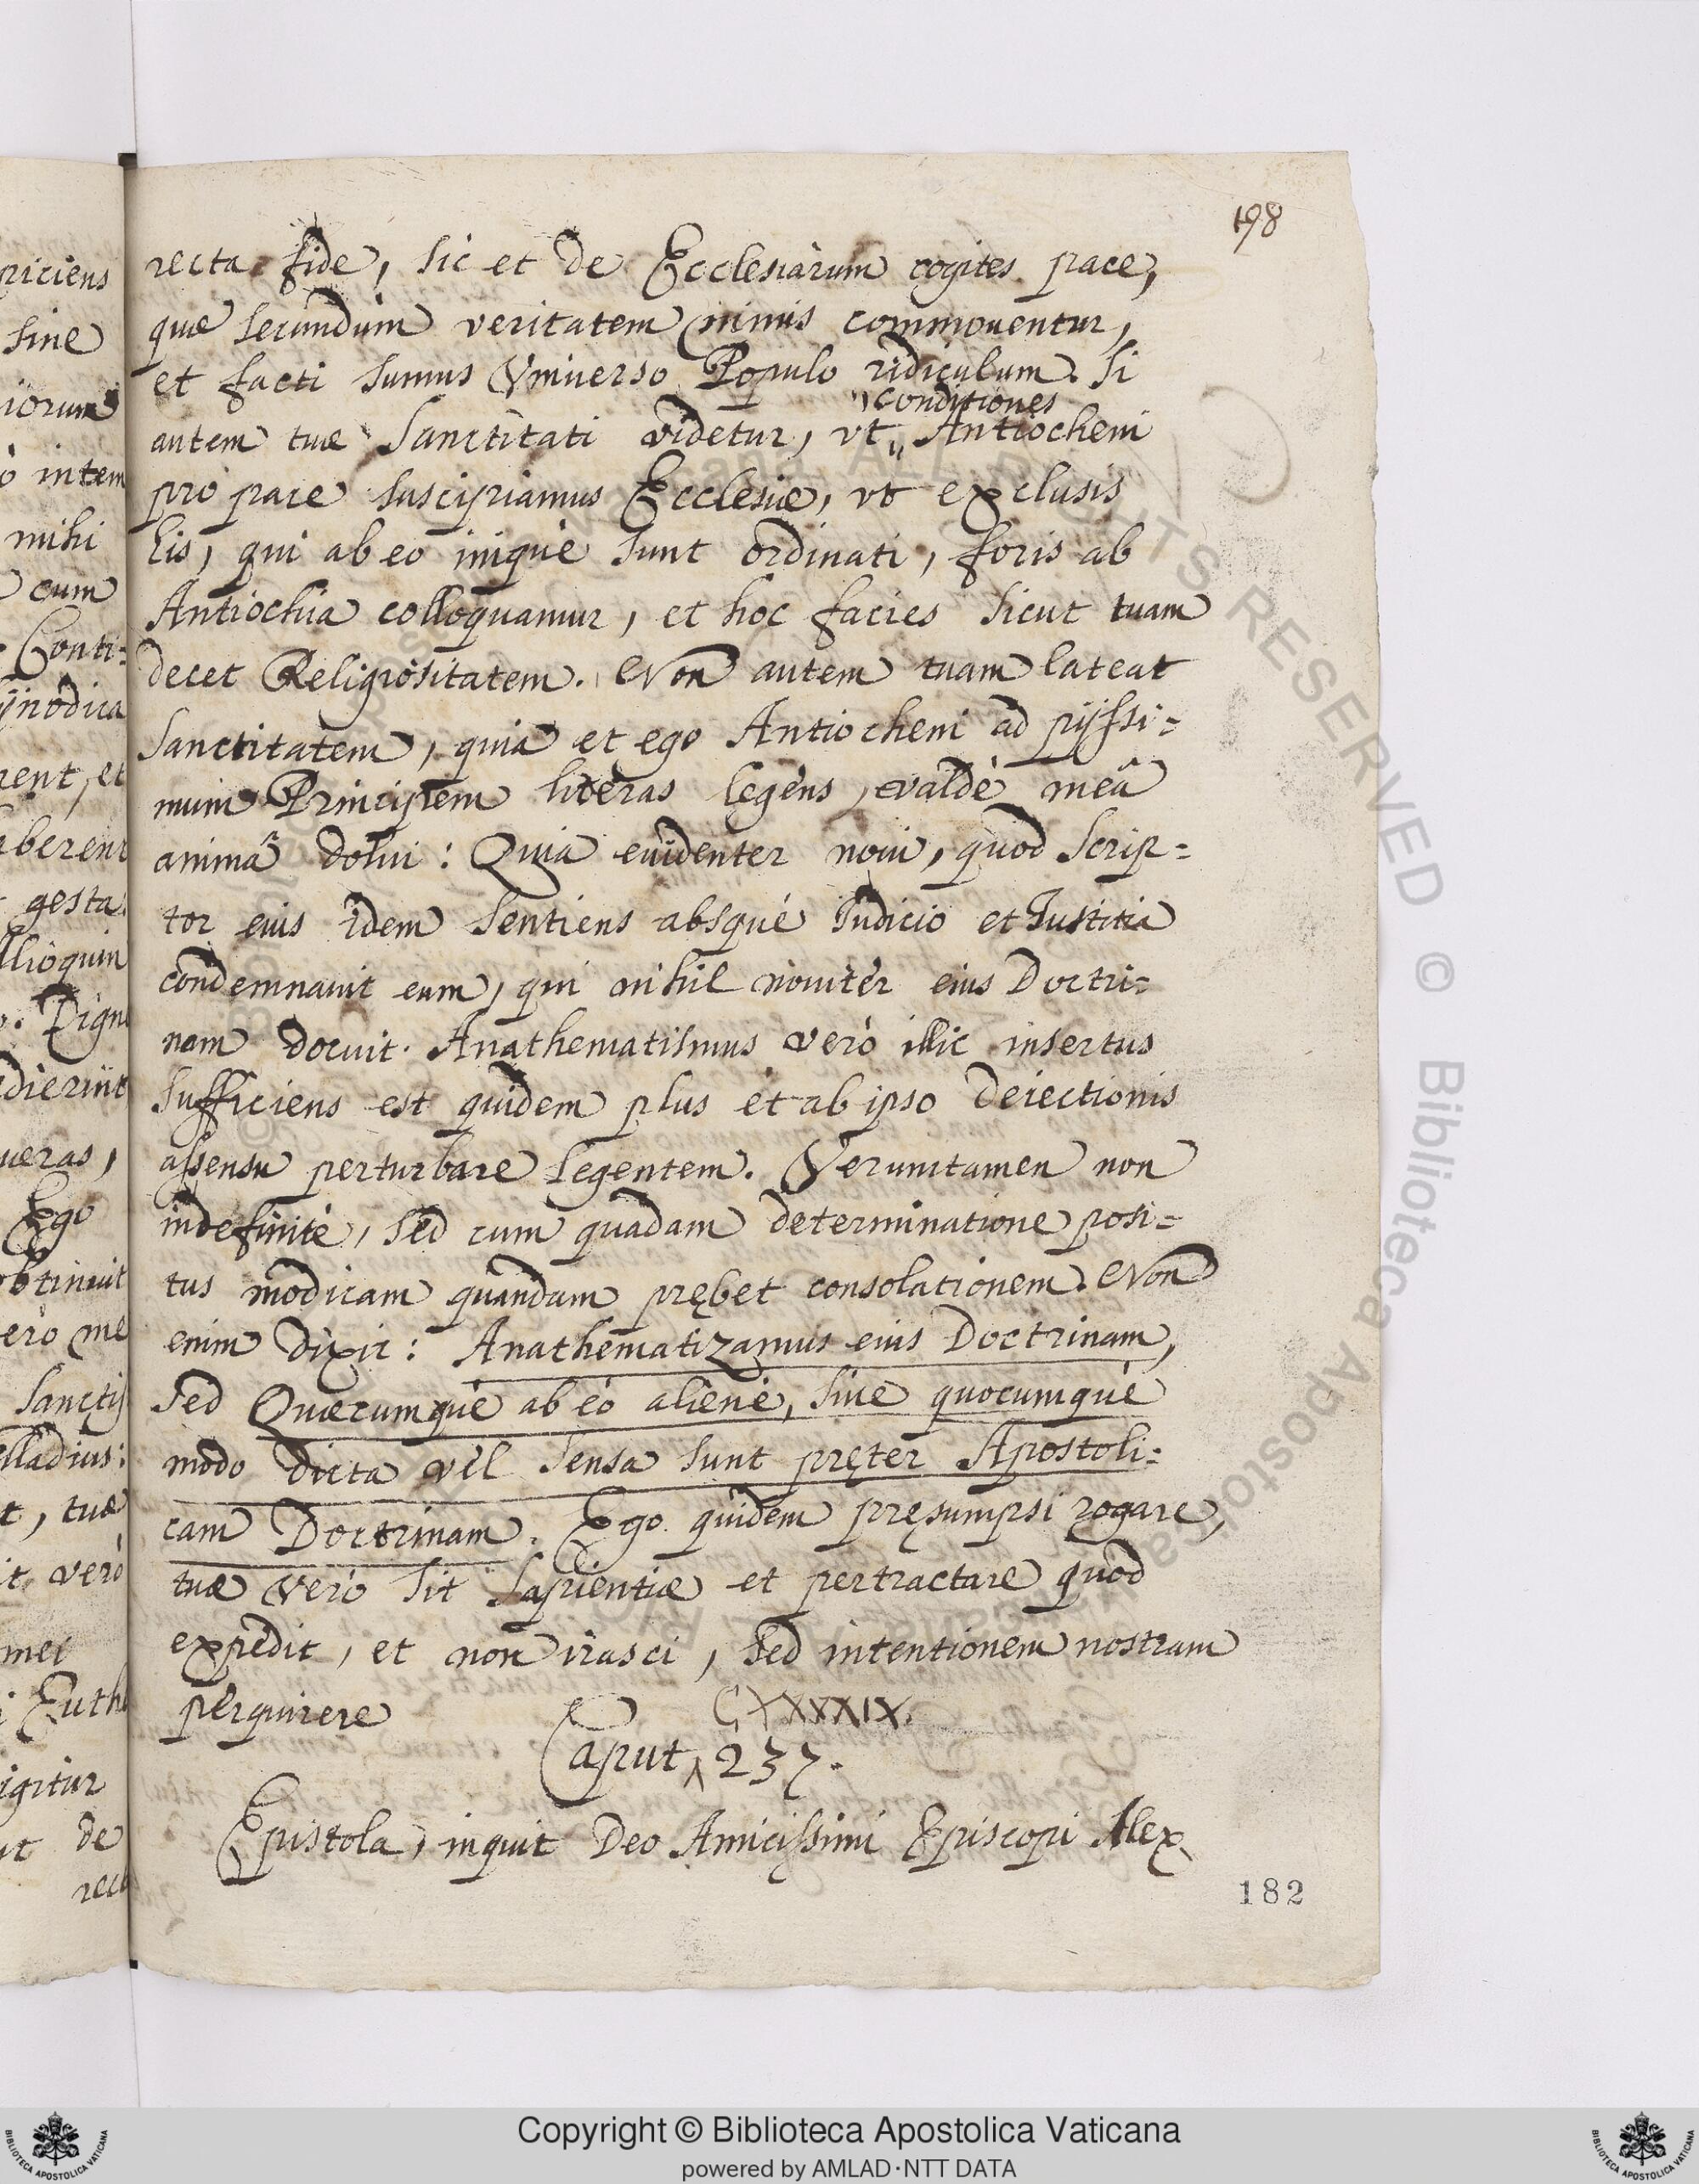 198
recta fide, sic et de Ecclesiarum cogites pace,
quæ secundùm veritatem nimis commouentur,
et facti sumus Vniuerso Populo ridiculum. Si
conditiones
autem tuæ Sanctitati videtur, vt Antiocheni
pro pace suscipiamus Ecclesiæ, vt exclusis
lis, qui ab eo iniquè sunt ordinati, foris ab
Antiochia colloquamur, et hoc facies sicut tuam
decet Religiositatem. Non autem tuam lateat
Sanctitatem, quia et ego Antiocheni ad pijssi=
mum Principem literas legens, valdè meâ
animâ dolui: Quia euidenter noui, quod Scrip=
tor eius idem sentiens absque Iudicio et Iustitia
condemnauit eum, qui nihil nouiter eius Doctri=
nam docuit. Anathematismus verò illic insertus
sufficiens est quidem plus et ab ipso deiectionis
assensu perturbare legentem. Verumtamen non
indefinitè, sed cum quadam determinatione posi=
tus modicam quandam prębet consolationem. Non
enim dixit: Anathematizamus eius Doctrinam,
sed Quæcumque ab eo alienè, siue quocumque
modo dicta vel sensa sunt pręter Apostoli=
cam Doctrinam. Ego quidem pręsumpsi rogare,
tuæ verò sit Sapientiæ et pertractare quod
expedit, et non irasci, sed intentionem nostram
perquirere
CXXXXIX.
Caput 237.
Epistola, inquit Deo Amicissimi Episcopi Alex
182
priciens
sine
iorum
ò intem
mihi
cum
Conti=
ijnodica
rent, et
aberent
gesta
llioquin
. Dign
dierint
ueras,
Ego
obtinuit
erò me
Sanctis
elladius:
t, tuæ
it verò
mei
i Euth
igitur
ut de
rect
Copyright © Biblioteca Apostolica Vaticana
powered by AMLAD·NTT DATA